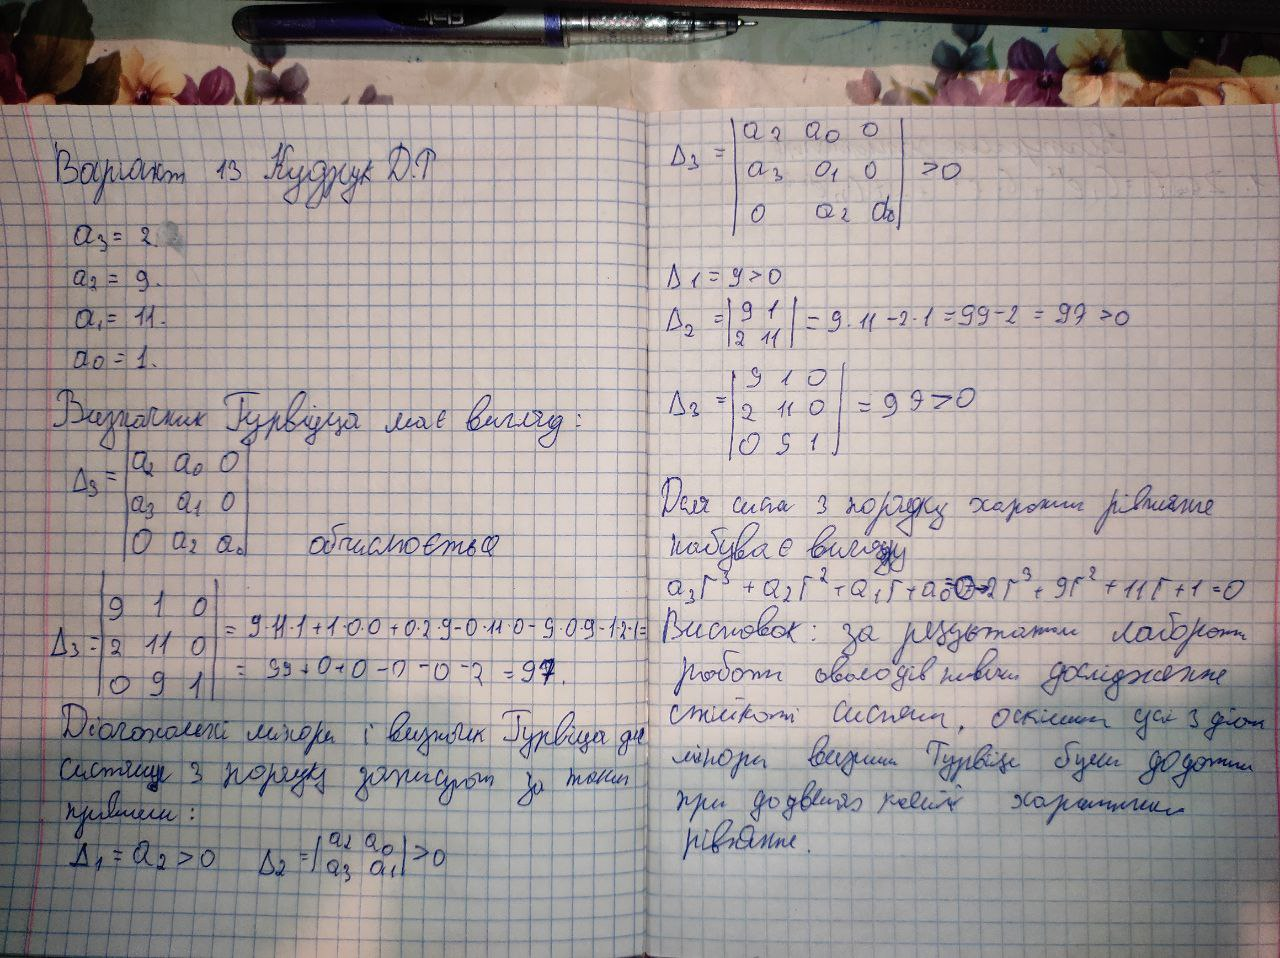 Варіант 13 Кудрук Д.Р
a₃ = 2.
a₂ = 9.
a₁ = 11.
a₀ = 1.
Визначник Гурвіца має вигляд:
Δ₃ = | a₂ a₀ 0 |
| a₃ a₁ 0 |
| 0 a₂ a₀ | обчислюється
Δ₃ = | 9 1 0 |
| 2 11 0 |
| 0 9 1 |
= 9·11·1+1·0·0+0·2·9-0·11·0-9·0·9-1·2·1=
= 99+0+0-0-0-2 = 97.
Діагональні мінори і визначник Гурвіца для
системи 3 порядку записують за таким
правилом:
Δ₁ = a₂ > 0 Δ₂ = | a₂ a₀ |
| a₃ a₁ | > 0
Δ₃ = | a₂ a₀ 0 |
| a₃ a₁ 0 | > 0
| 0 a₂ a₀ |
Δ₁ = 9 > 0
Δ₂ = | 9 1 |
| 2 11 | = 9·11-2·1=99-2 = 97 > 0
Δ₃ = | 9 1 0 |
| 2 11 0 | = 97 > 0
| 0 9 1 |
Для сист 3 порядку рівняння
набуває вигляду
a₃r³ + a₂r² + a₁r + a₀=0 → 2r³ + 9r² + 11r + 1 = 0
Висновок: за результатом
роботи дослідження
стійкості систем, усі 3 діаг
мінори Гурвіца були додатні
при
рівняння.